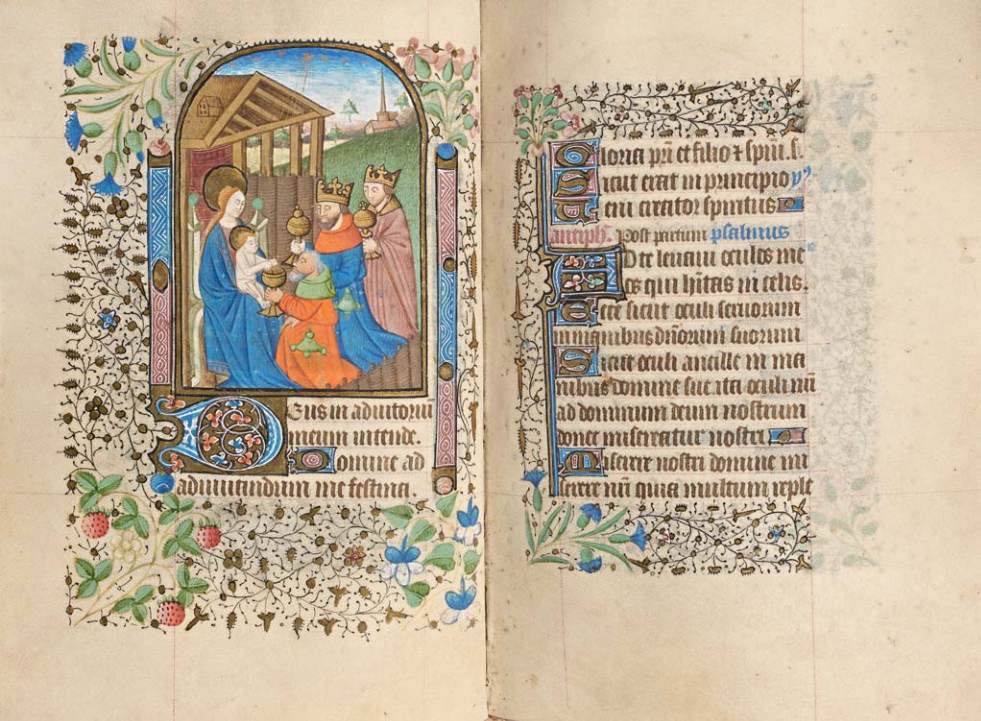 Deus in adiutoriu
meum intende.
Domine ad
adiuuandum me festina.
Gloria pri et filio & spiri. s.
Sicut erat in principio
Veni creator spiritus
antiph. Post partum psalmus
Ad te leuaui oculos me
os qui hitas in celis.
Ecce sicut oculi seruorum
in manibus dnorum suorum
Sicut oculi ancille in ma
nibus domine sue ita oculi nri
ad dominum deum nostrum
donec misereatur nostri
Miserere nostri domine mi
serere nri quia multum reple